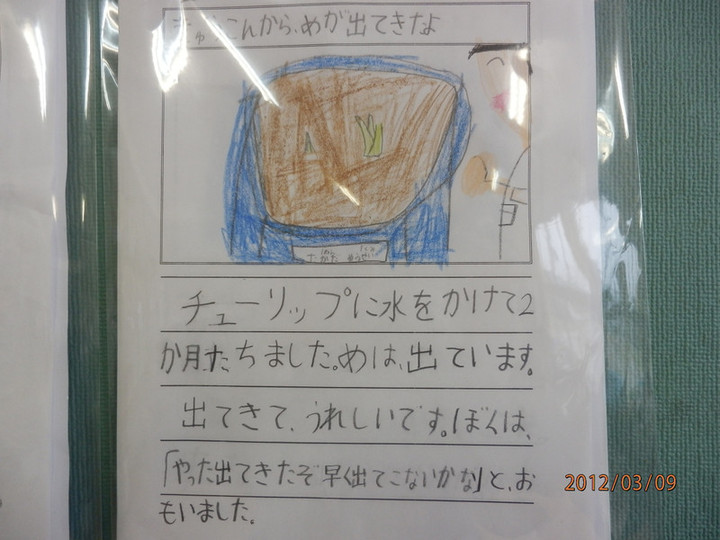 きゅうこんから、めが出てきたよ
チューリップに水をかけて2
か月たちました。めは、出ています。
出てきて、うれしいです。ぼくは、
「やった出てきたぞ早く出てこないかな」と、お
もいました。
2012/03/09